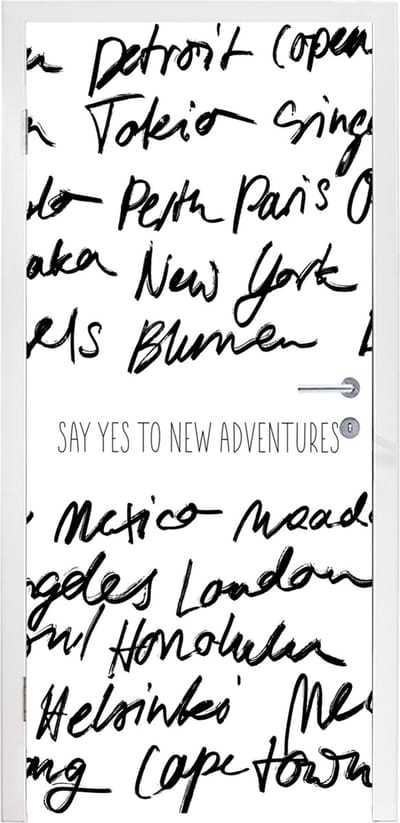 Detroit Copen
Tokio Singa
lo Perth Paris O
aka New York
els Blumen
SAY YES TO NEW ADVENTURES
Mexico Maad
ngeles London
oul Honolulu
Helsinki Me
ong Cape town